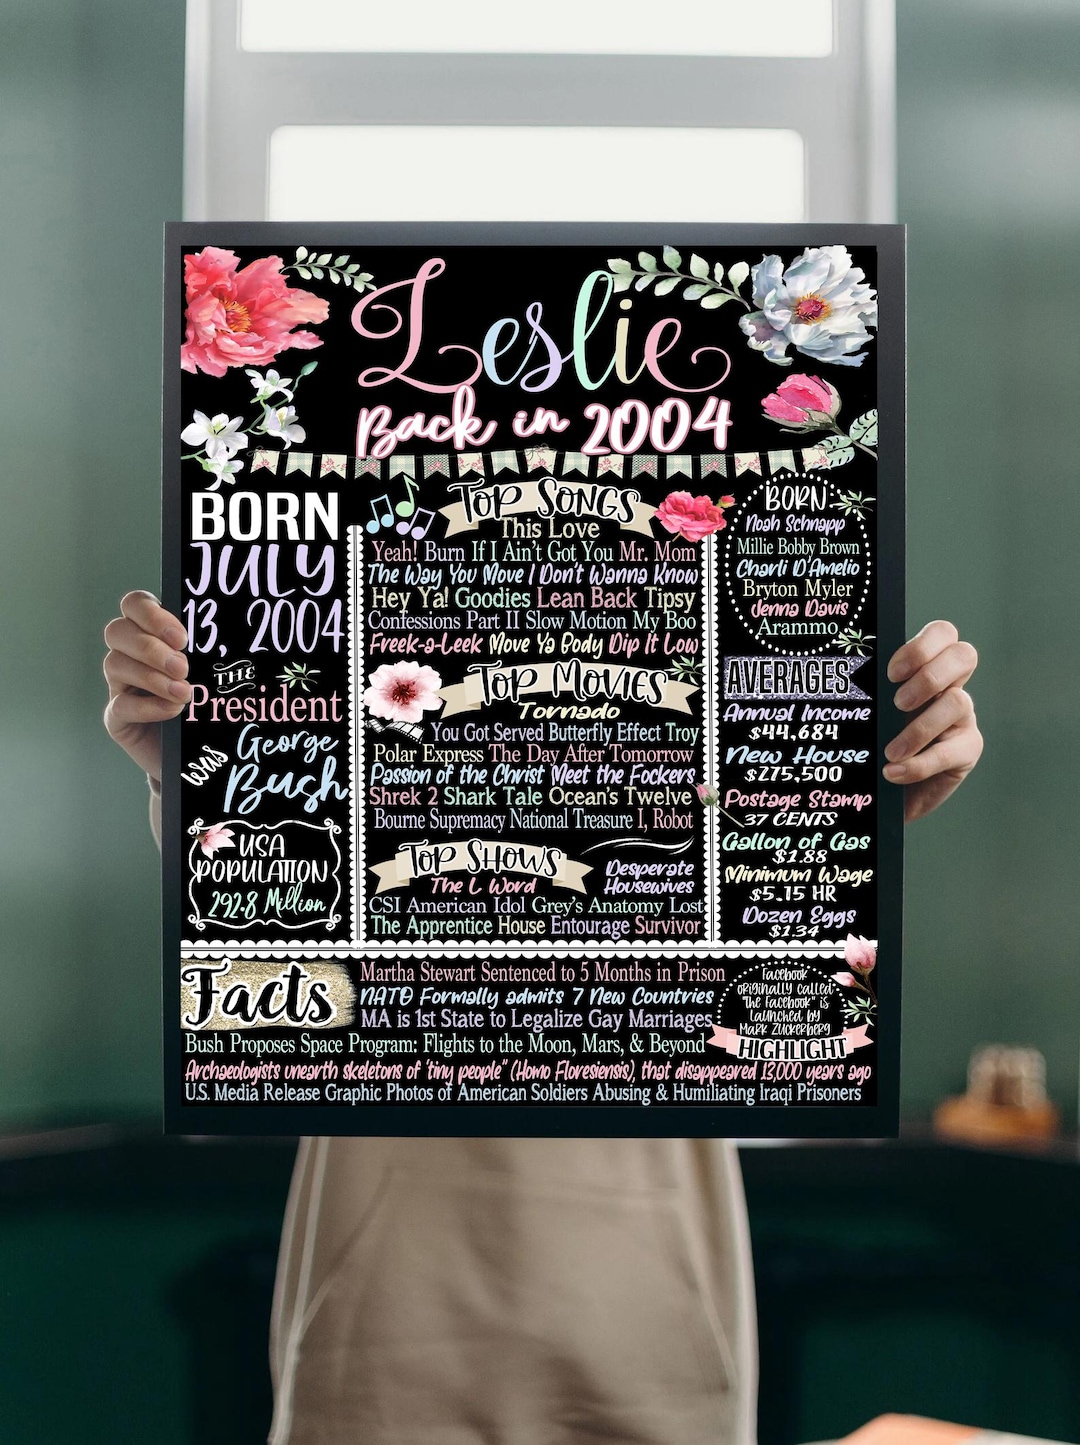 Leslie
Back in 2004
BORN
JULY
13, 2004
THE
President
was George
Bush
USA
POPULATION
292.8 Million
TOP SONGS
This Love
Yeah! Burn If I Ain't Got You Mr. Mom
The Way You Move I Don't Wanna Know
Hey Ya! Goodies Lean Back Tipsy
Confessions Part II Slow Motion My Boo
Freek-a-Leek Move Ya Body Dip It Low
TOP MOVIES
Tornado
You Got Served Butterfly Effect Troy
Polar Express The Day After Tomorrow
Passion of the Christ Meet the Fockers
Shrek 2 Shark Tale Ocean's Twelve
Bourne Supremacy National Treasure I, Robot
TOP SHOWS
Desperate
The L Word Housewives
CSI American Idol Grey's Anatomy Lost
The Apprentice House Entourage Survivor
BORN
Noah Schnapp
Millie Bobby Brown
Charli D'Amelio
Bryton Myler
Jenna Davis
Arammo
AVERAGES
Annual Income
$44,684
New House
$275,500
Postage Stamp
37 CENTS
Gallon of Gas
$1.88
Minimum Wage
$5.15 HR
Dozen Eggs
$1.34
Facts
Martha Stewart Sentenced to 5 Months in Prison
NATO Formally admits 7 New Countries
MA is 1st State to Legalize Gay Marriages
Bush Proposes Space Program: Flights to the Moon, Mars, & Beyond
Archaeologists unearth skeletons of "tiny people" (Homo Floresiensis), that disappeared 13,000 years ago
U.S. Media Release Graphic Photos of American Soldiers Abusing & Humiliating Iraqi Prisoners
Facebook
originally called
"The Facebook" is
launched by
Mark Zuckerberg
HIGHLIGHT